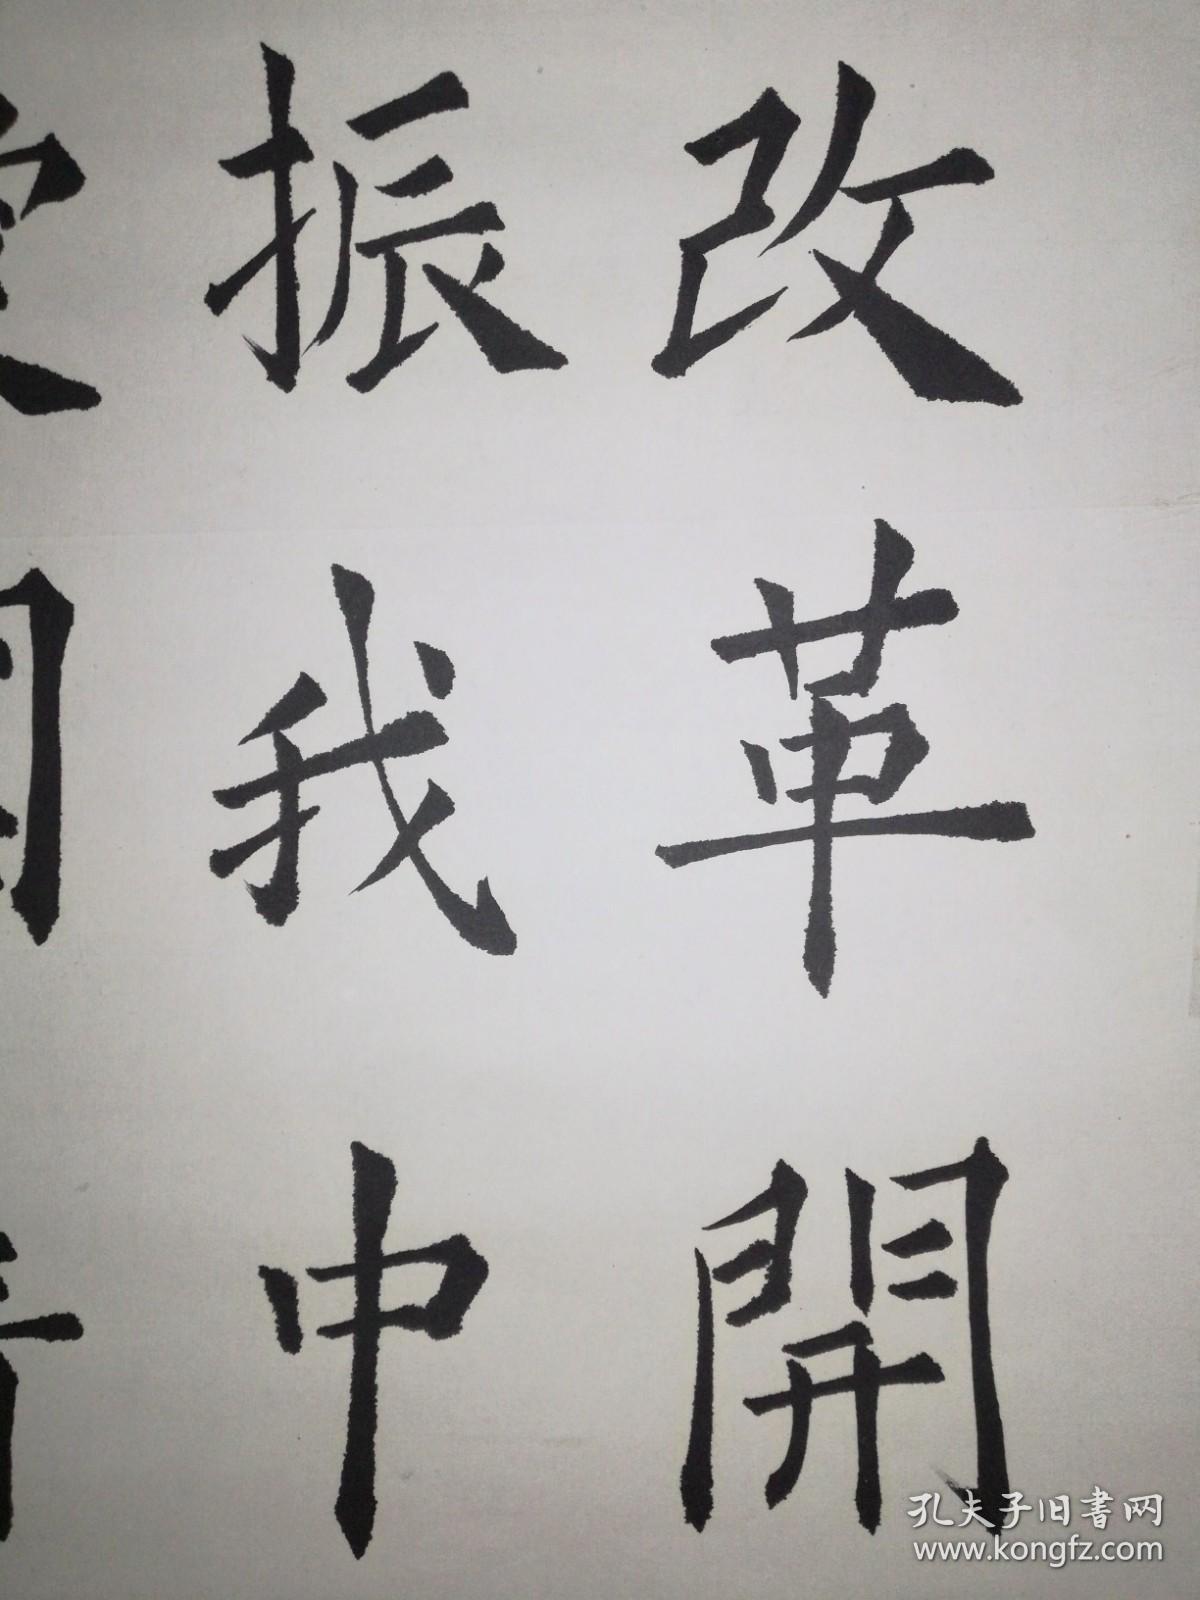 改革開
振我中
孔夫子旧书网
www.kongfz.com